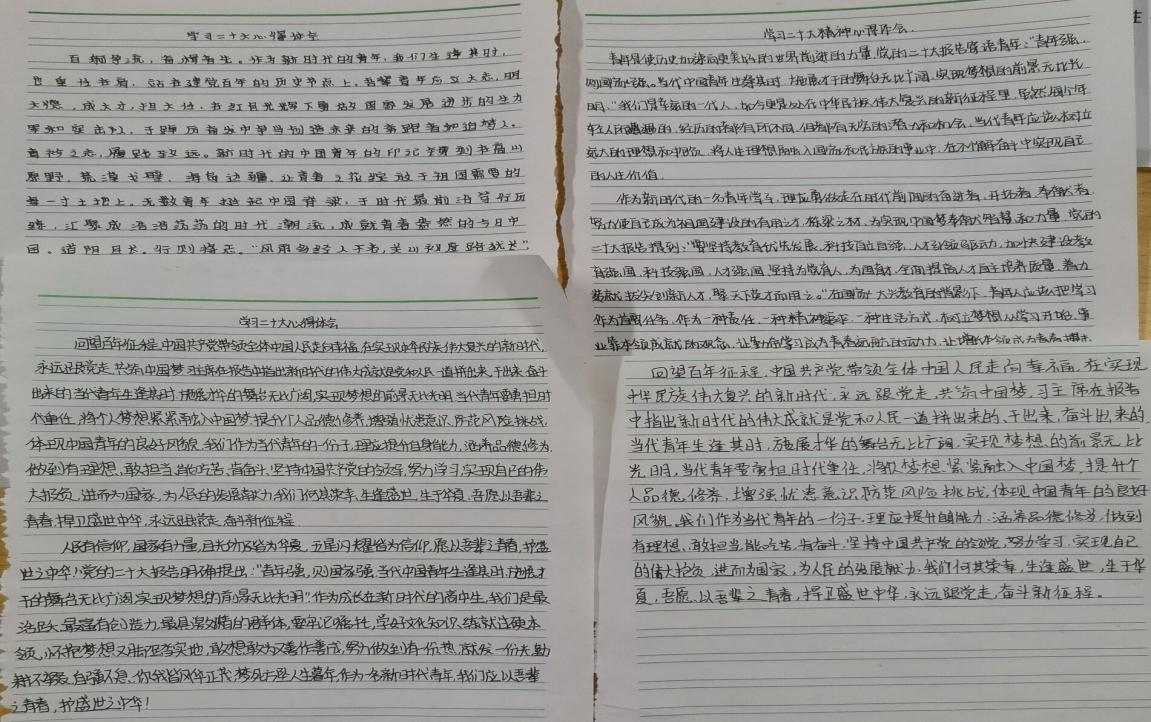 学习二十大心得体会
百舸争流，奋楫者先。作为新时代的青年，我们生逢其时，
也重任在肩，站在建党百年的历史节点上，吾辈青年应立大志，明
大德，成大才，担大任，
青衿之志，履践致远。新时代的中国青年的印记镌刻在高山
原野、荒漠戈壁、海岛边疆，让青春之花绽放于祖国需要的
每一寸土地上。无数青年挺起中国脊梁，于时代最前沿写好历
汇聚成浩浩荡荡的时代潮流，成就青春盎然的今日中
国。道阻且长，行则将至。
学习二十大精神心得体会
党的二十大报告寄语青年："青年强，
则国家强。当代中国青年生逢其时，施展才干的舞台无比广阔，实现梦想的前景无比光
明。"我们是幸福的一代人，如今更是处在中华民族伟大复兴的新征程里，虽然每个年
轻人所遇的，经历的都有所不同，但都有无穷的潜力和机会，当代青年应该树立
远大的理想和抱负，将人生理想融入国家和民族的事业中，在不懈奋斗中实现自己
的人生价值。
作为新时代的一名青年学生，理应勇做走在时代前面的奋进者、开拓者、奉献者，
努力使自己成为祖国建设的有用之才、栋梁之材，为实现中国梦奉献智慧和力量。党的
二十大报告提到："要坚持教育优先发展、科技自立自强、人才引领驱动，加快建设教
育强国、科技强国、人才强国，坚持为党育人、为国育才，全面提高人才自主培养质量，着力
造就拔尖创新人才，聚天下英才而用之。"在国家大兴教育的背景下，青年人应该把学习
作为首要任务，作为一种责任、一种精神追求、一种生活方式，树立梦想从学习开始、事
业靠本领成就的观念，让勤奋学习成为青春远航的动力，让增长本领成为青春搏击
学习二十大心得体会
回望百年征程，中国共产党带领全体中国人民走向幸福，在实现中华民族伟大复兴的新时代，
永远跟党走，共筑中国梦，习主席在报告中指出新时代的伟大成就是党和人民一道拼出来、干出来、奋斗
出来的，当代青年生逢其时，施展才华的舞台无比广阔，实现梦想的前景无比光明，当代青年要勇担时
代重任，将个人梦想紧紧融入中国梦，提升个人品德修养，增强忧患意识，防范风险挑战，
体现中国青年的良好风貌，我们作为当代青年的一份子，理应提升自身能力，涵养品德修为，
做到有理想、敢担当、能吃苦、肯奋斗，坚持中国共产党的领导，努力学习，实现自己的伟
大抱负，进而为国家，为人民的发展献力，我们何其荣幸，生逢盛世，生于华夏，吾愿以吾辈之
青春，捍卫盛世中华，永远跟党走，奋斗新征程。
人民有信仰，国家有力量，目光所致皆为华夏，五星闪耀皆为信仰，愿以吾辈之青春，护盛
世之中华！党的二十大报告明确提出："青年强，则国家强，当代中国青年生逢其时，施展才
干的舞台无比广阔，实现梦想的前景无比光明"作为成长在新时代的高中生，我们是最
活跃、最富有创造力、最具潜力的群体，要牢记嘱托，学好文化知识，练就过硬本
领，心怀梦想又脚踏实地，敢想敢为又善作善成，努力做到有一份热，就发一份光，勤
耕不辍，自强不息，你我皆风华正茂，作为一名新时代青年，我们应以吾辈
之青春，护盛世之中华！
回望百年征程，中国共产党带领全体中国人民走向幸福，在实现
中华民族伟大复兴的新时代，永远跟党走，共筑中国梦，习主席在报告
中指出新时代的伟大成就是党和人民一道拼出来的、干出来、奋斗出来的，
当代青年生逢其时，施展才华的舞台无比广阔，实现梦想的前景无比
光明，当代青年要勇担时代重任，将个人梦想紧紧融入中国梦，提升个
人品德修养，增强忧患意识，防范风险挑战，体现中国青年的良好
风貌。我们作为当代青年的一份子，理应提升自身能力，涵养品德修为，做到
有理想、敢担当、能吃苦、肯奋斗，坚持中国共产党的领导，努力学习，实现自己
的伟大抱负，进而为国家，为人民的发展献力，我们何其荣幸，生逢盛世，生于华
夏，吾愿以吾辈之青春，捍卫盛世中华，永远跟党走，奋斗新征程。